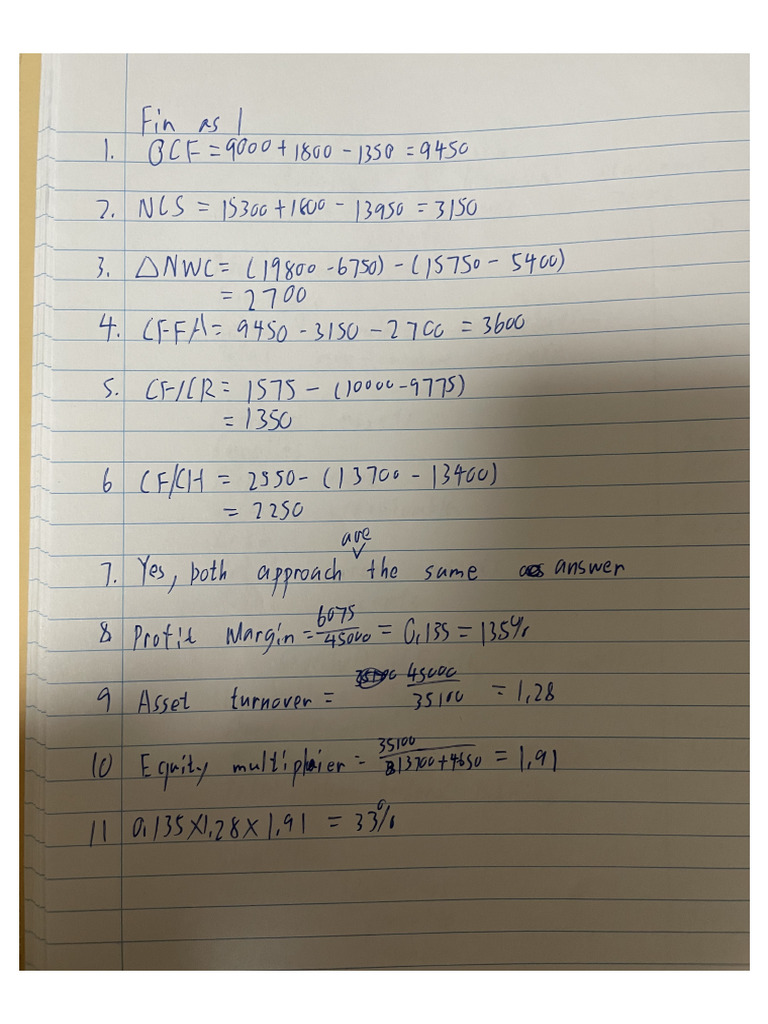 Fin as 1
1. OCF = 9000 + 1800 - 1350 = 9450
2. NCS = 15300 + 1800 - 13950 = 3150
3. △NWC = (19800 - 6750) - (15750 - 5400)
= 2700
4. CFFA = 9450 - 3150 - 2700 = 3600
5. CF/CR = 1575 - (10000 - 9775)
= 1350
6 CF/CH = 2550 - (13700 - 13400)
= 2250
are
7. Yes, both approach the same answer
8 Profit Margin = 6075/45000 = 0,135 = 135%
9 Asset turnover = 45000/35100 = 1,28
10 Equity multiplier = 35100/13700+4650 = 1,91
11 0,135 X 1,28 X 1,91 = 33%